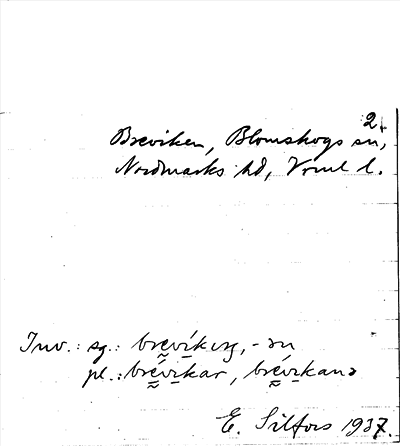 2.
Breviken, Blomskogs sn,
Nordmarks hd, Värml l.
Inv.: sg.: brevikıŋ, -ən
pl.: brévikar, brévikanə
E. Silfors 1937.